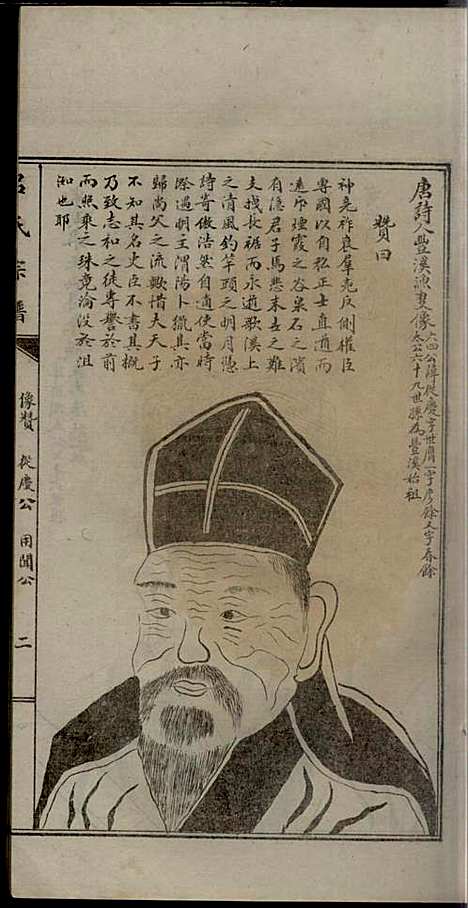 唐詩人豐溪漁叟像
公諱從慶字世膺一字彥餘又字春餘
太公六十九世孫為豐溪始祖
贊曰
神堯祚衰羣兇反側權臣
專國以自私正士直道而
遠斥煙霞之谷泉石之濱
有隱君子焉悲末古之難
支找長裾而永逝歌溪上
之清風釣竿頭之明月憑
詩寄傲浩然自適使當時
際遇明王渭陽卜獵其亦
歸尚父之流歟惜夫天子
不知其名史臣不書其概
乃致志和之徒専譽於前
而照乘之珠竟淪沒於沮
洳也耶
呂氏宗譜
像贊
從慶公
用聞公
二